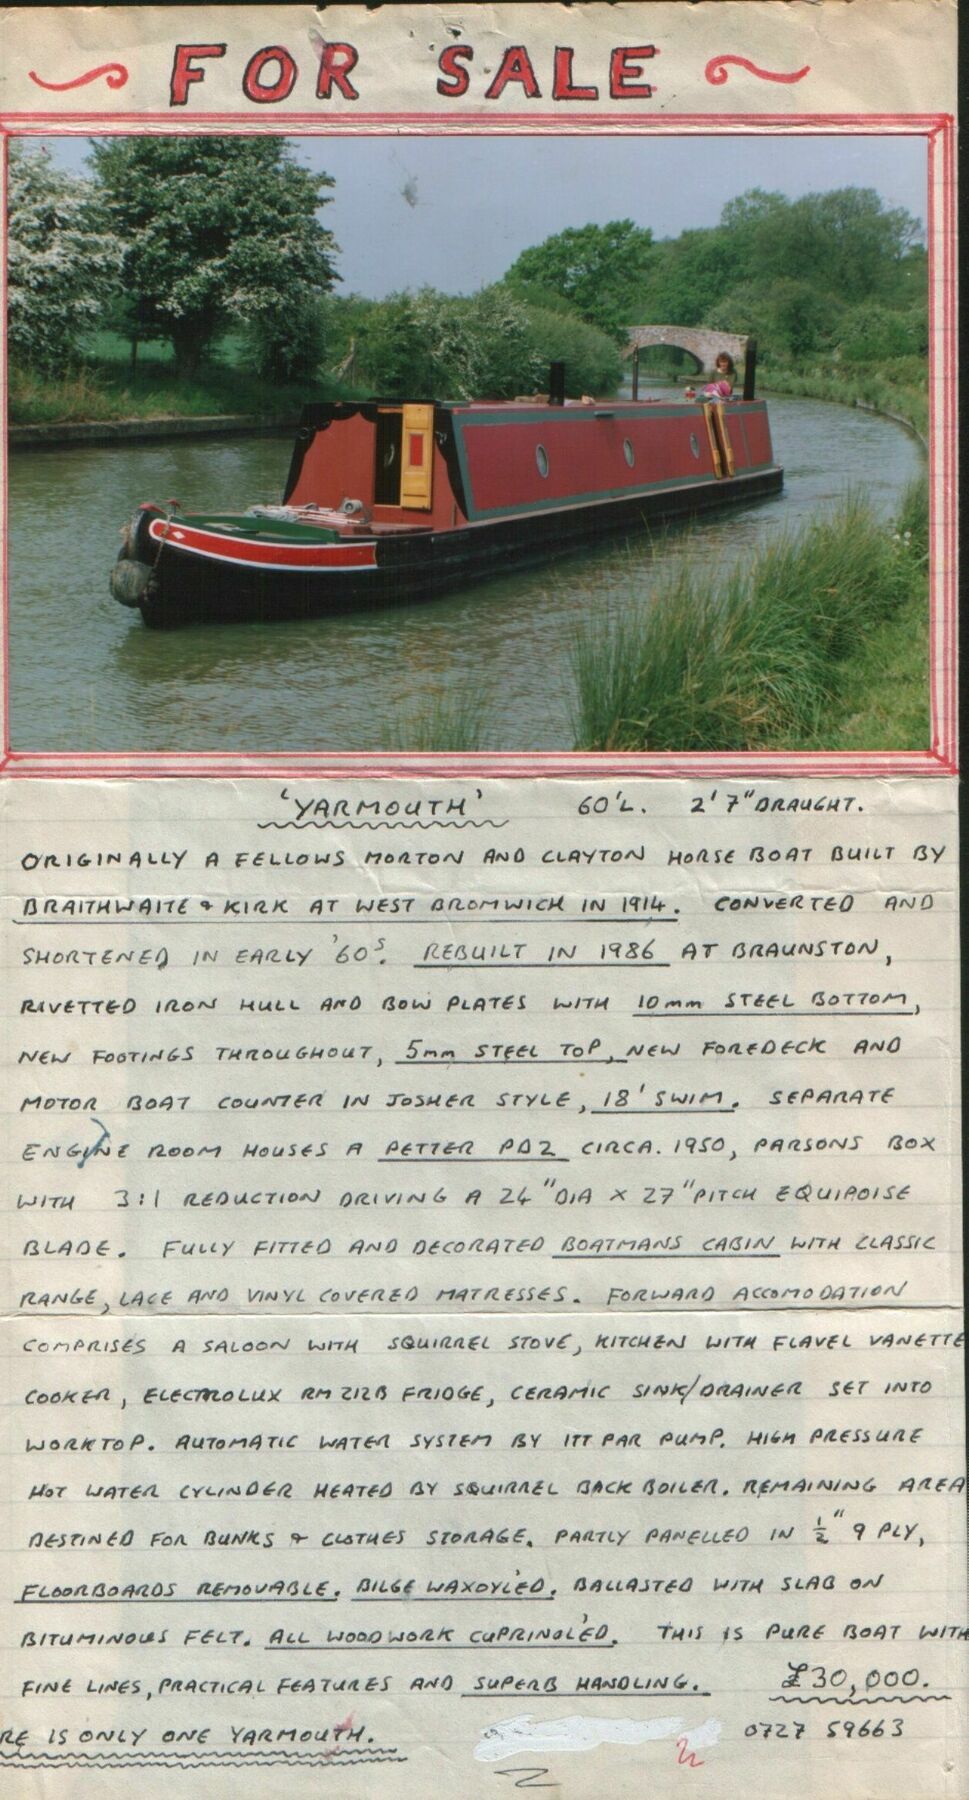 FOR SALE
'YARMOUTH' 60'L. 2'7" DRAUGHT.
ORIGINALLY A FELLOWS MORTON AND CLAYTON HORSE BOAT BUILT BY
BRAITHWAITE & KIRK AT WEST BROMWICH IN 1914. CONVERTED AND
SHORTENED IN EARLY '60s. REBUILT IN 1986 AT BRAUNSTON,
RIVETTED IRON HULL AND BOW PLATES WITH 10mm STEEL BOTTOM,
NEW FOOTINGS THROUGHOUT, 5mm STEEL TOP, NEW FOREDECK AND
MOTOR BOAT COUNTER IN JOSHER STYLE, 18' SWIM. SEPARATE
ENGINE ROOM HOUSES A PETTER PD2 CIRCA. 1950, PARSONS BOX
WITH 3:1 REDUCTION DRIVING A 24" DIA X 27" PITCH EQUIPOISE
BLADE. FULLY FITTED AND DECORATED BOATMANS CABIN WITH CLASSIC
RANGE, LACE AND VINYL COVERED MATRESSES. FORWARD ACCOMODATION
COMPRISES A SALOON WITH SQUIRREL STOVE, KITCHEN WITH FLAVEL VANETTE
COOKER, ELECTROLUX RM212B FRIDGE, CERAMIC SINK/DRAINER SET INTO
WORKTOP. AUTOMATIC WATER SYSTEM BY ITT PAR PUMP. HIGH PRESSURE
HOT WATER CYLINDER HEATED BY SQUIRREL BACK BOILER. REMAINING AREA
DESTINED FOR BUNKS & CLOTHES STORAGE. PARTLY PANELLED IN ½" 9 PLY,
FLOORBOARDS REMOVABLE. BILGE WAXOYL'ED. BALLASTED WITH SLAB ON
BITUMINOUS FELT. ALL WOODWORK CUPRINOL'ED. THIS IS PURE BOAT WITH
FINE LINES, PRACTICAL FEATURES AND SUPERB HANDLING. £30,000.
RE IS ONLY ONE YARMOUTH. 0727 59663